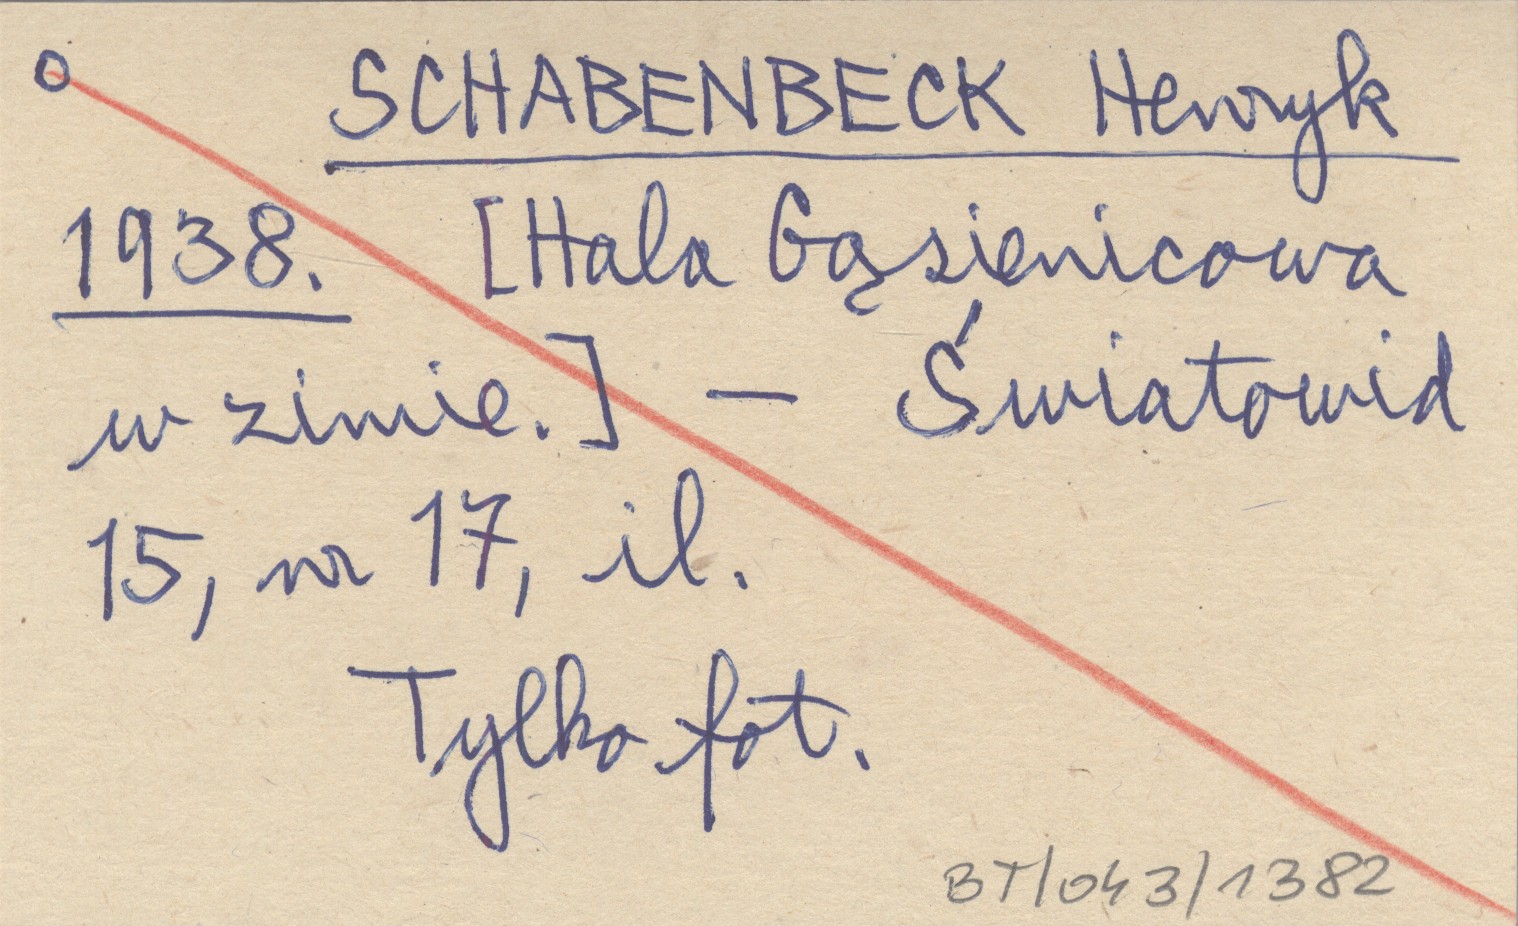 O SCHABENBECK Henryk
1938. [Hala Gąsienicowa
w zimie.] — Światowid
15, nr 17, il.
Tylko fot.
BT/043/1382